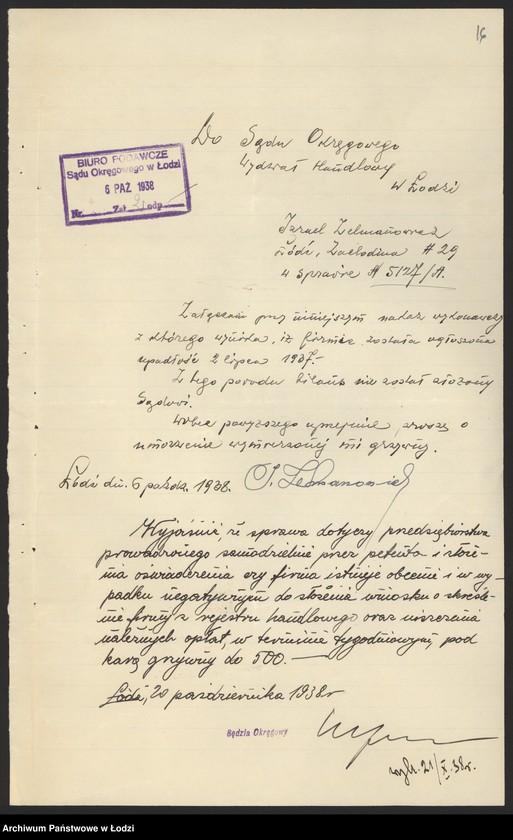 16
Do Sądu Okręgowego
Wydział Handlowy
w Łodzi
BIURO PODAWCZE
Sądu Okręgowego w Łodzi
6 PAŹ 1938
Nr. Zał. 2 odp.
Izrael Zelmanowicz
Łódź, Zachodnia # 29
w sprawie # 5127/A.
Załączam przy niniejszym nakaz wykonawczy
z którego wynika, iż firmie została ogłoszona
upadłość 2 lipca 1937.-
Z tego powodu bilans nie został złożony
Sądowi.
Wobec powyższego uprzejmie proszę o
umorzenie wymierzonej mi grzywny.
Łódź dn. 6 paźdz. 1938.
Wyjaśnić, że sprawa dotyczy przedsiębiorstwa
prowadzonego samodzielnie przez petenta i złoże-
nia oświadczenia czy firma istnieje obecnie i w wy-
padku negatywnym do złożenia wniosku o skreśle-
nie firmy z rejestru handlowego oraz uiszczenia
należnych opłat, w terminie tygodniowym, pod
karą grzywny do 500.-
Łódź, 20 października 1938r
Sędzia Okręgowy
wyk. 21/X.38r.
Archiwum Państwowe w Łodzi